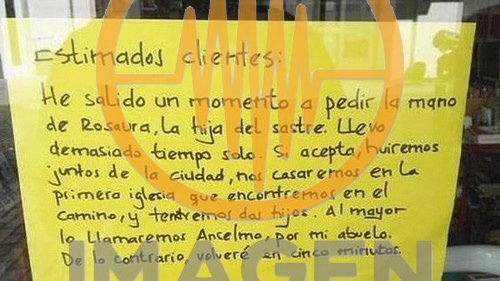 Estimados clientes:
He salido un momento a pedir la mano
de Rosaura, la hija del sastre. Llevo
demasiado tiempo solo. Si acepta, huiremos
juntos de la ciudad, nos casaremos en la
primera iglesia que encontremos en el
camino, y tendremos dos hijos. Al mayor
lo llamaremos Anselmo, por mi abuelo.
De lo contrario, volveré en cinco minutos.
IMAGEN